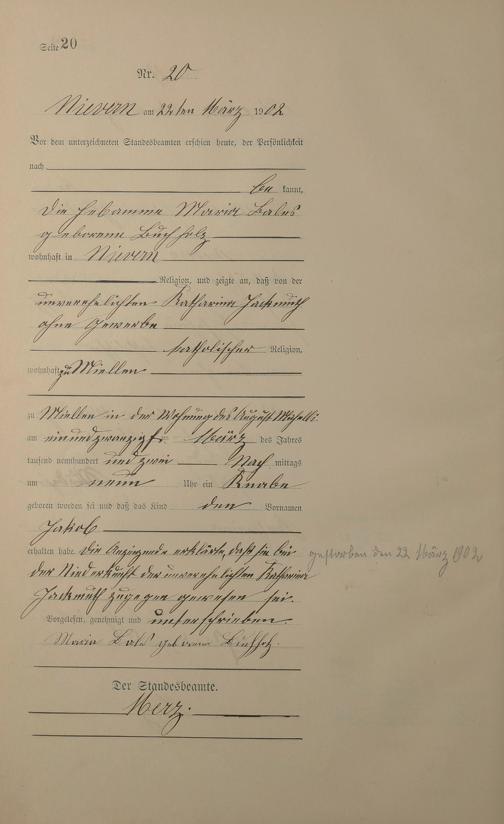 Seite 20
Nr. 20
Nievern am 22ten März 1902
Vor dem unterzeichneten Standesbeamten erschien heute, der Persönlichkeit
nach
be kannt,
die Hebamme Maria Bales
geborene Buchholz
wohnhaft in Nievern
Religion, und zeigte an, daß von der
unverehelichten Katharina Jackmuth
ohne Gewerbe
katholischer Religion,
wohnhaft zu Miellen
zu Miellen in der Wohnung des August
am einundzwanzigst März des Jahres
tausend neunhundert und zwei Nach mittags
um neun Uhr ein Knabe
geboren worden sei und daß das Kind den Vornamen
Jakob
erhalten habe. Die Anzeigende erklärte, daß sie bei
der Niederkunft der unverehelichten Katharina
Jackmuth zugegen gewesen sei.
Vorgelesen, genehmigt und unterschrieben.
Maria Bales geborene Buchholz.
Der Standesbeamte.
Merz.
gestorben den 22 März 1902